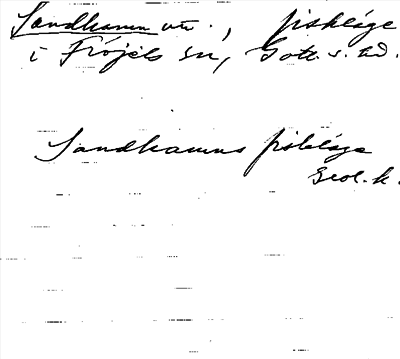 Sandhamn utr., fiskläge
i Fröjels sn, Gotl. s. hd.
Sandhamns fiskläge
Geol. k.